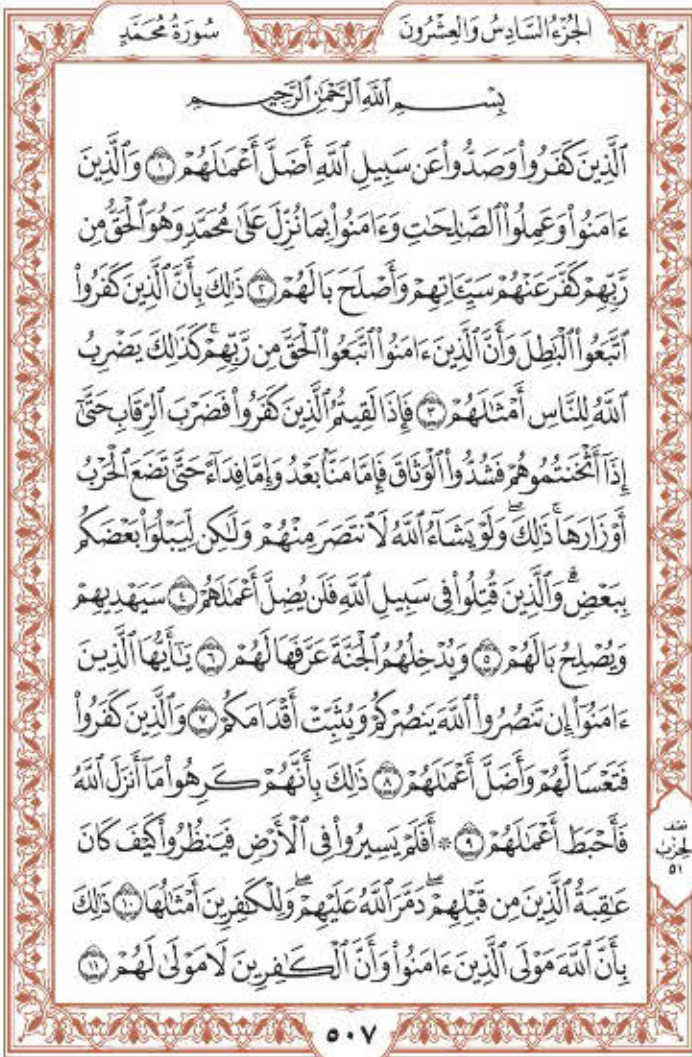 الجُزْءُ السَّادِسُ وَالعِشْرُونَ
سُورَةُ مُحَمَّدٍ
بِسْمِ ٱللَّهِ ٱلرَّحْمَٰنِ ٱلرَّحِيمِ
ٱلَّذِينَ كَفَرُوا۟ وَصَدُّوا۟ عَن سَبِيلِ ٱللَّهِ أَضَلَّ أَعْمَٰلَهُمْ ١ وَٱلَّذِينَ
ءَامَنُوا۟ وَعَمِلُوا۟ ٱلصَّٰلِحَٰتِ وَءَامَنُوا۟ بِمَا نُزِّلَ عَلَىٰ مُحَمَّدٍ وَهُوَ ٱلْحَقُّ مِن
رَّبِّهِمْ كَفَّرَ عَنْهُمْ سَيِّـَٔاتِهِمْ وَأَصْلَحَ بَالَهُمْ ٢ ذَٰلِكَ بِأَنَّ ٱلَّذِينَ كَفَرُوا۟
ٱتَّبَعُوا۟ ٱلْبَٰطِلَ وَأَنَّ ٱلَّذِينَ ءَامَنُوا۟ ٱتَّبَعُوا۟ ٱلْحَقَّ مِن رَّبِّهِمْ ۚ كَذَٰلِكَ يَضْرِبُ
ٱللَّهُ لِلنَّاسِ أَمْثَٰلَهُمْ ٣ فَإِذَا لَقِيتُمُ ٱلَّذِينَ كَفَرُوا۟ فَضَرْبَ ٱلرِّقَابِ حَتَّىٰٓ
إِذَآ أَثْخَنتُمُوهُمْ فَشُدُّوا۟ ٱلْوَثَاقَ فَإِمَّا مَنًّۢا بَعْدُ وَإِمَّا فِدَآءً حَتَّىٰ تَضَعَ ٱلْحَرْبُ
أَوْزَارَهَا ۚ ذَٰلِكَ ۖ وَلَوْ يَشَآءُ ٱللَّهُ لَٱنتَصَرَ مِنْهُمْ وَلَٰكِن لِّيَبْلُوَا۟ بَعْضَكُم
بِبَعْضٍ ۗ وَٱلَّذِينَ قُتِلُوا۟ فِى سَبِيلِ ٱللَّهِ فَلَن يُضِلَّ أَعْمَٰلَهُمْ ٤ سَيَهْدِيهِمْ
وَيُصْلِحُ بَالَهُمْ ٥ وَيُدْخِلُهُمُ ٱلْجَنَّةَ عَرَّفَهَا لَهُمْ ٦ يَٰٓأَيُّهَا ٱلَّذِينَ
ءَامَنُوٓا۟ إِن تَنصُرُوا۟ ٱللَّهَ يَنصُرْكُمْ وَيُثَبِّتْ أَقْدَامَكُمْ ٧ وَٱلَّذِينَ كَفَرُوا۟
فَتَعْسًا لَّهُمْ وَأَضَلَّ أَعْمَٰلَهُمْ ٨ ذَٰلِكَ بِأَنَّهُمْ كَرِهُوا۟ مَآ أَنزَلَ ٱللَّهُ
فَأَحْبَطَ أَعْمَٰلَهُمْ ٩ ۞ أَفَلَمْ يَسِيرُوا۟ فِى ٱلْأَرْضِ فَيَنظُرُوا۟ كَيْفَ كَانَ
عَٰقِبَةُ ٱلَّذِينَ مِن قَبْلِهِمْ ۖ دَمَّرَ ٱللَّهُ عَلَيْهِمْ ۖ وَلِلْكَٰفِرِينَ أَمْثَٰلُهَا ١٠ ذَٰلِكَ
بِأَنَّ ٱللَّهَ مَوْلَى ٱلَّذِينَ ءَامَنُوا۟ وَأَنَّ ٱلْكَٰفِرِينَ لَا مَوْلَىٰ لَهُمْ ١١
نصف
الحزب
٥١
٥٠٧